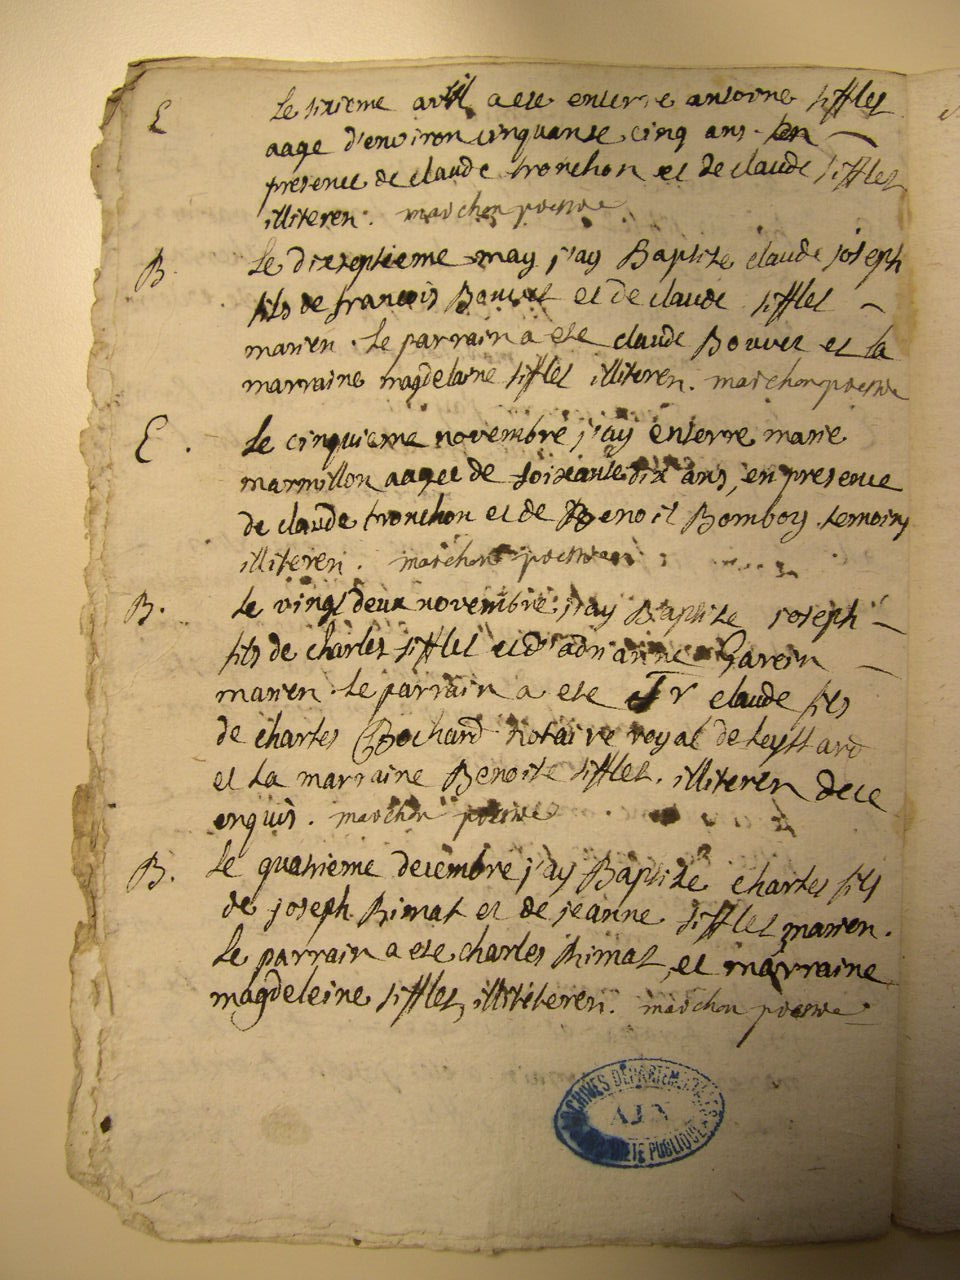 E
Le sixieme avril a ete enterre antoine sifflet
aage d'environ cinquante cinq ans. en
presence de claude tronchon et de claude sifflet
illiteren. marchon prestre
B. Le dixseptieme may j'ay Baptize claude joseph
fils de francois Bouvet et de claude sifflet
marien. Le parrain a ete claude Bouvet et la
marraine magdelaine sifflet illiteren. marchon prestre
E. Le cinquieme novembre j'ay enterre marie
marmillon aagee de soixante dix ans, en presence
de claude tronchon et de Benoit Bomboy temoins
illiteren. marchon prestre
B. Le vingt deux novembre j'ay Baptize joseph
fils de charles sifflet et d'adrianne Garein
marien. Le parrain a ete Sr claude fils
de charles Bochard notaire royal de leyssard
et la marraine Benoite sifflet. illiteren de ce
enquis. marchon prestre
B. Le quatrieme decembre j'ay Baptize charles fils
de joseph Rimat et de jeanne sifflet marien.
Le parrain a ete charles Rimat, et marraine
magdeleine sifflet, illiteteren. marchon prestre
ARCHIVES DÉPARTEMENTALES
AIN
PUBLIQUE